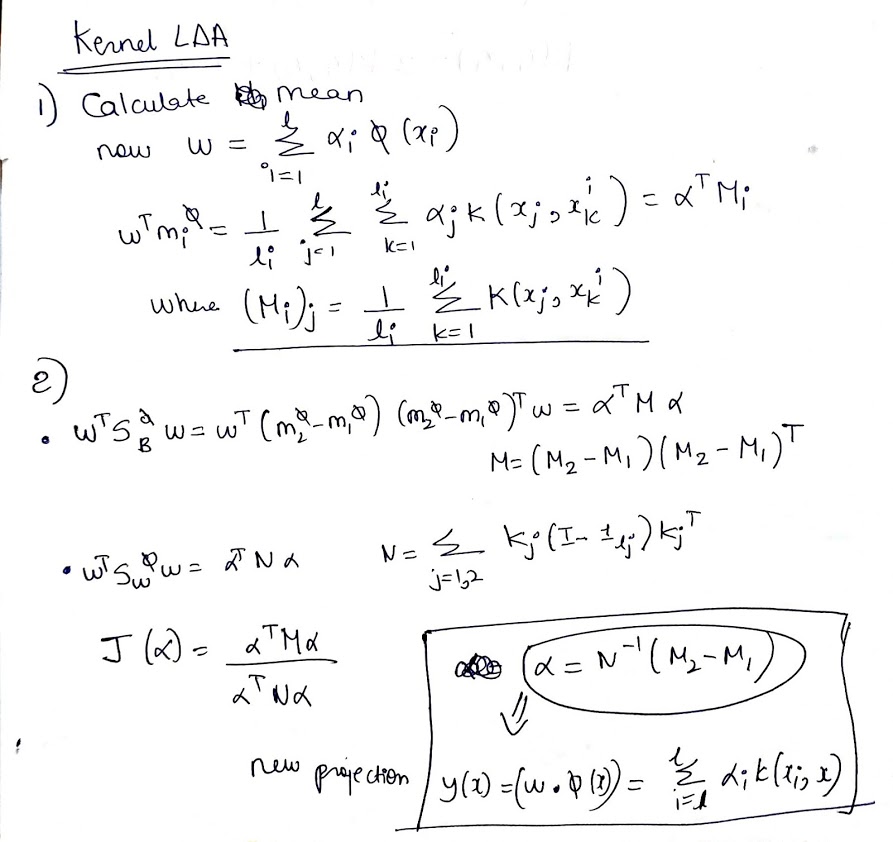 Kernel LDA
1) Calculate mean
now w = Σ_{i=1}^{l} α_i φ(x_i)
w^T m_i^φ = 1/l_i Σ_{j=1}^{l} Σ_{k=1}^{l_i} α_j k(x_j, x_k^i) = α^T M_i
where (M_i)_j = 1/l_i Σ_{k=1}^{l_i} K(x_j, x_k^i)
2)
• w^T S_B^φ w = w^T (m_2^φ - m_1^φ) (m_2^φ - m_1^φ)^T w = α^T M α
M = (M_2 - M_1)(M_2 - M_1)^T
• w^T S_w^φ w = α^T N α   N = Σ_{j=1,2} K_j (I - 1_{l_j}) K_j^T
J(α) = α^T M α / α^T N α
α = N^{-1} (M_2 - M_1)
⇓
new projection y(x) = (w • φ(x)) = Σ_{i=1}^{l} α_i k(x_i, x)